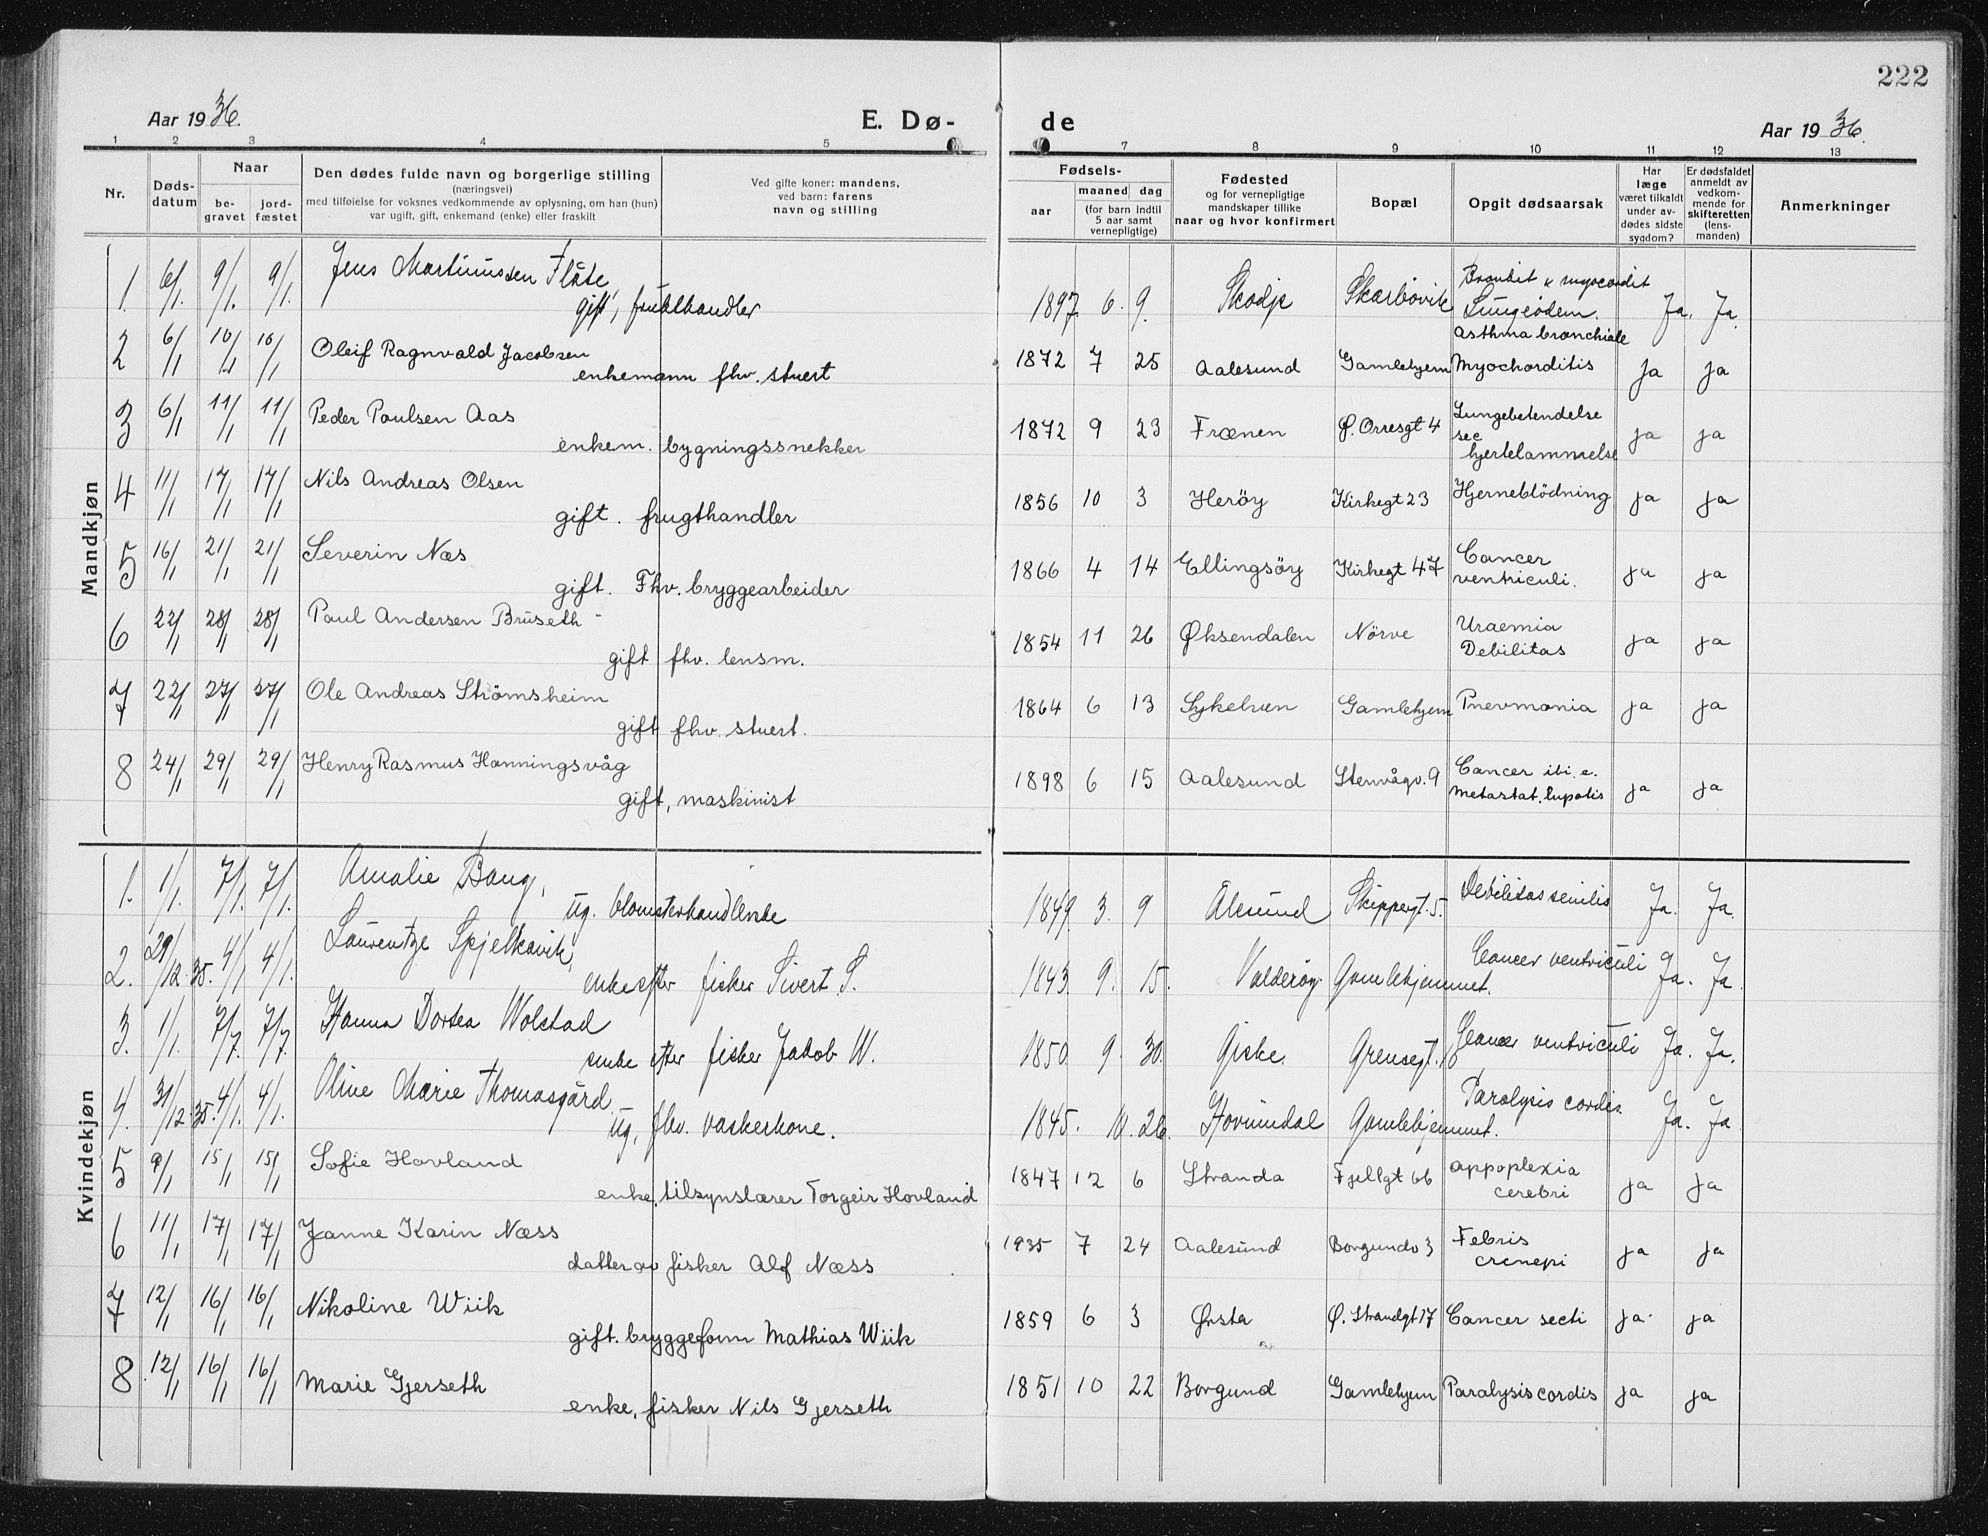 222
Aar 1936.
E. Dø-
de
Aar 1936.
1 2 3 4 5 7 8 9 10 11 12 13
Nr.
Døds-
datum
Naar
be-
gravet
jord-
fæstet
Den dødes fulde navn og borgerlige stilling
(næringsvei)
med tilføielse for voksnes vedkommende av oplysning, om han (hun)
var ugift, gift, enkemand (enke) eller fraskilt
Ved gifte koner: mandens,
ved barn: farens
navn og stilling
Fødsels-
aar
maaned dag
(for barn indtil
5 aar samt
vernepligtige)
Fødested
og for vernepligtige
mandskaper tillike
naar og hvor konfirmert
Bopæl
Opgit dødsaarsak
Har
læge
været tilkaldt
under av-
dødes sidste
sygdom?
Er dødsfaldet
anmeldt av
vedkom-
mende for
skifteretten
(lens-
manden)
Anmerkninger
Mandkjøn
1. 6/1. 9/1. 9/1. Jens Martinussen Flåte
gift, frukthandler 1897. 6. 9. Skodje Skarbøvik Bronkit & myocardit
Lungeödem. Ja. Ja.
2 6/1 10/1 10/1 Oleif Ragnvald Jacobsen
enkemann fhv. stuert 1872 7 25 Aalesund Gamlehjem Asthma bronchiale
Myochorditis Ja Ja
3 6/1 11/1 11/1 Peder Paulsen Aas
enkem. bygningssnekker 1872 9 23 Frænen Ø. Orresgt 4 Lungebetendelse
sec
hjertelammelse ja ja
4 11/1 17/1 17/1 Nils Andreas Olsen
gift. frugthandler 1856 10 3 Heröy Kirkegt 23 Hjerneblödning ja ja
5 16/1 21/1 21/1 Severin Næs
gift. Fhv. bryggearbeider 1866 4 14 Ellingsöy Kirkegt 47 Cancer
ventriculi. ja ja
6 22/1 28/1 28/1 Paul Andersen Bruseth
gift fhv. lensm. 1854 11 26 Øksendalen Nörve Uraemia
Debilitas ja ja
7 22/1 27/1 27/1 Ole Andreas Strömsheim
gift fhv. stuert. 1864 6 13 Sykelven Gamlehjem Pnevmonia ja ja
8 24/1 29/1 29/1 Henry Rasmus Honningsvåg
gift, maskinist 1898 6 15 Aalesund Stenvågv. 9 Cancer
metastat. ja ja
Kvindekjøn
1. 1/1. 7/1. 7/1. Amalie Bang,
ug. blomsterhandlende 1849. 3. 9 Ålesund Skippergt. 5. Debilitas senilis Ja. Ja.
2. 29/12. 35. 4/1. 4/1. Laurentze Spjelkavik,
enke efter fisker Sivert S. 1843. 9. 15. Valderöy Gamlehjemmet. Cancer ventriculi Ja. Ja.
3. 1/1. 7/7. 7/7. Hanna Dortea Wolstad
enke efter fisker Jakob W. 1850. 9. 30. Giske. Grensegt. Cancer ventriculi Ja. Ja.
4. 31/12. 35. 4/1. 4/1. Oline Marie Thomasgård.
ug, fhv. vaskerkone. 1845. 10. 26. Hovindal Gamlehjemmet. Paralysis cordis Ja. Ja.
5 9/1 15/1 15/1 Sofie Hovland
enke, tilsynslærer Torgeir Hovland 1847 12 6 Stranda Fjellgt 66 appoplexia
cerebri ja ja
6 11/1 17/1 17/1 Janne Karin Næss
datter av fisker Alf Næss 1935 7 24 Aalesund Borgundv 3 Febris ja ja
7 12/1 16/1 16/1 Nikoline Wiik
gift. bryggeform Mathias Wiik 1859 6 3 Ørsta Ø. Strandgt 17 Cancer secti ja. ja
8 12/1 16/1 16/1 Marie Gjerseth
enke, fisker Nils Gjerseth 1851 10 22 Borgund Gamlehjem Paralysis cordis ja ja